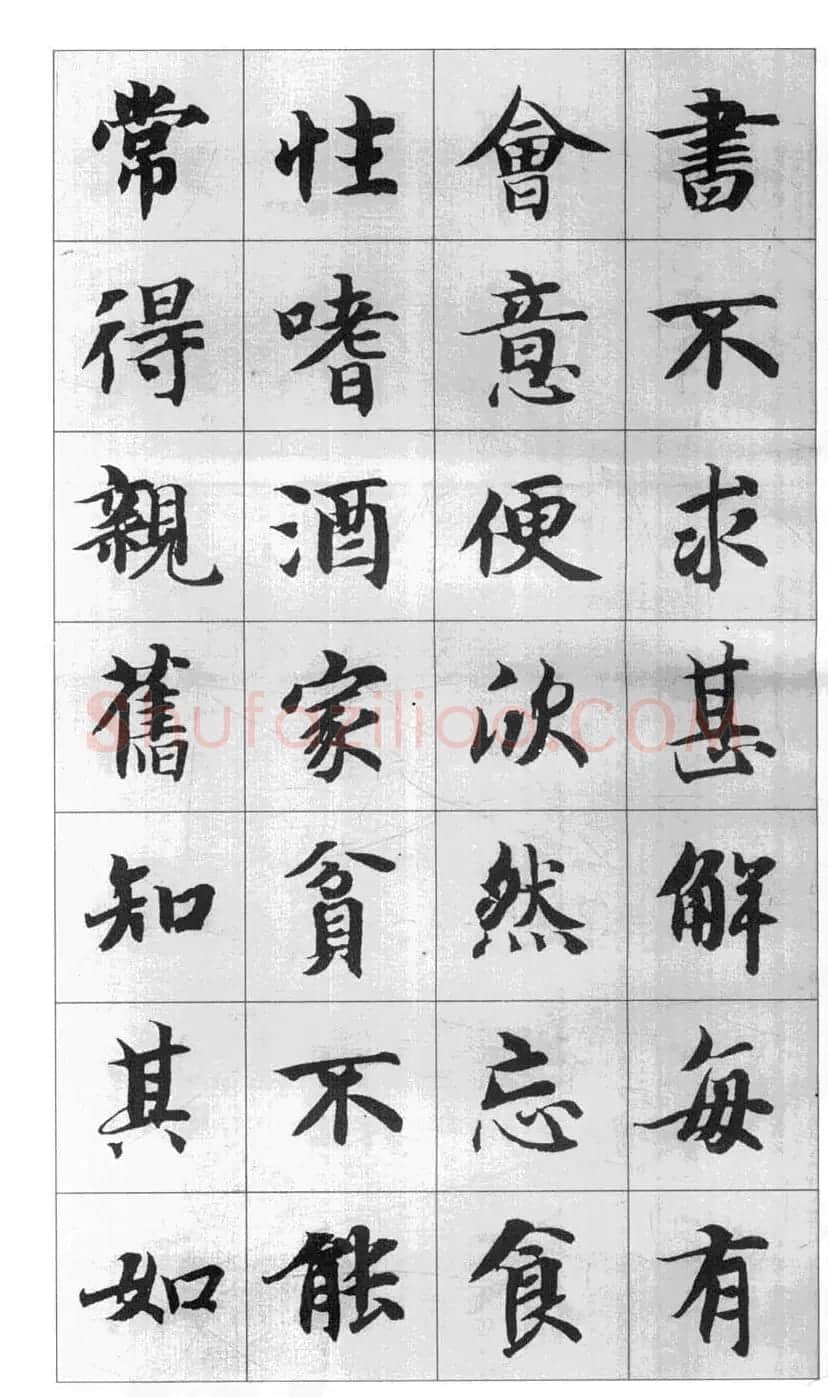 書不求甚解每有
會意便欣然忘食
性嗜酒家貧不能
常得親舊知其如
Shufaziliao.COM